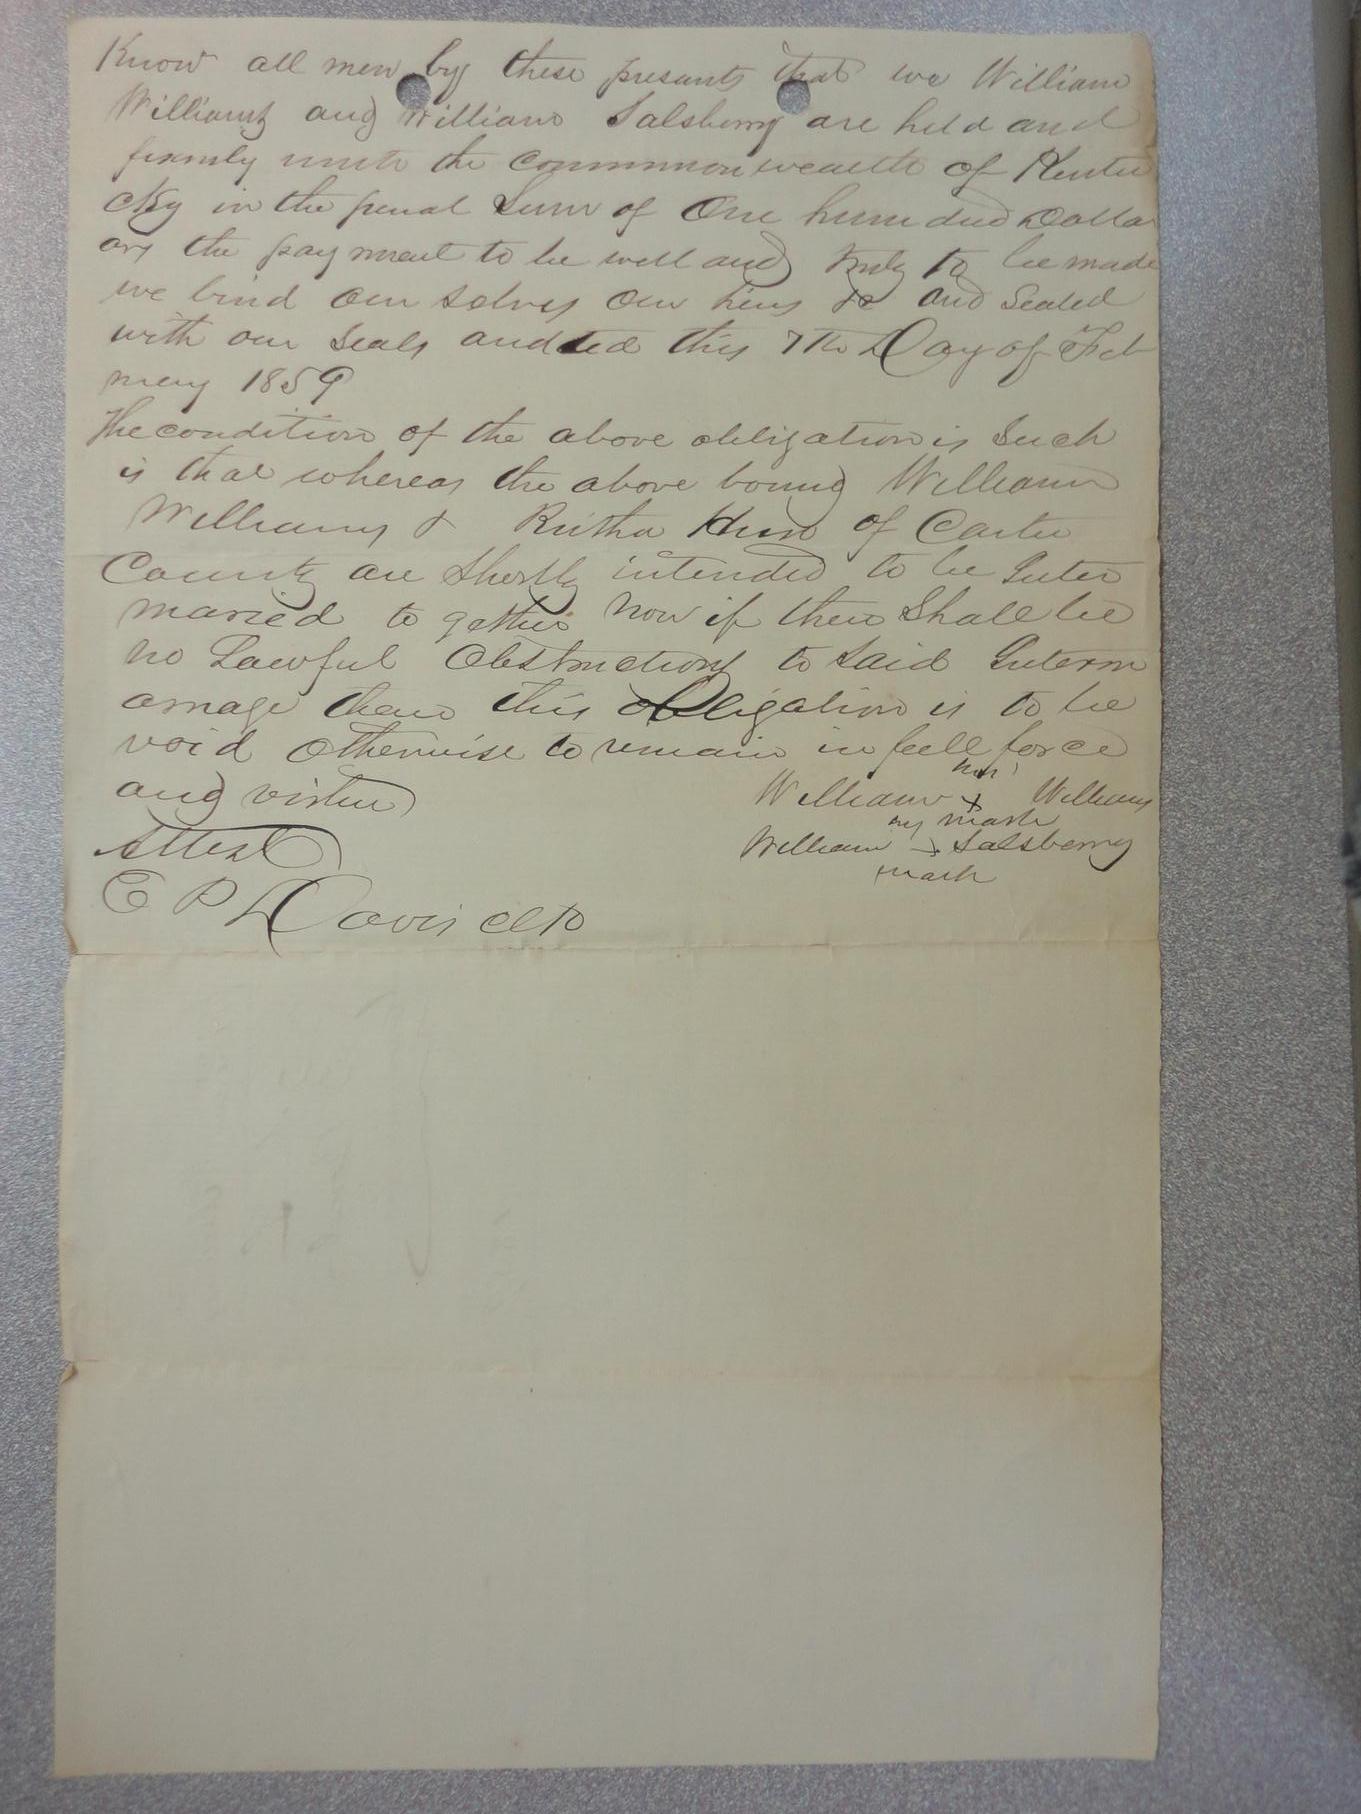 Know all men by these presants that we William
Williams and William Salsberry are held and
firmly unto the Commmonwealth of Kentu
cky in the penal Sum of One hundred Dolla
ars the payment to be well and truly to be made
we bind our selves our heirs &c and Sealed
with our Seals and this 7th Day of Feb
ruary 1859
The condition of the above obligation is Such
is that whereas the above bound William
Williams & Ruitha Hun of Carter
County are Shortly intended to be Inter
maried to gether Now if there Shall be
no Lawful Obstructions to Said Interm
arriage then this obligation is to be
void otherwise to remain in full force
and virtue
William his x Williams
mark
William x Salsberry
mark
Attest
E P Davis clk